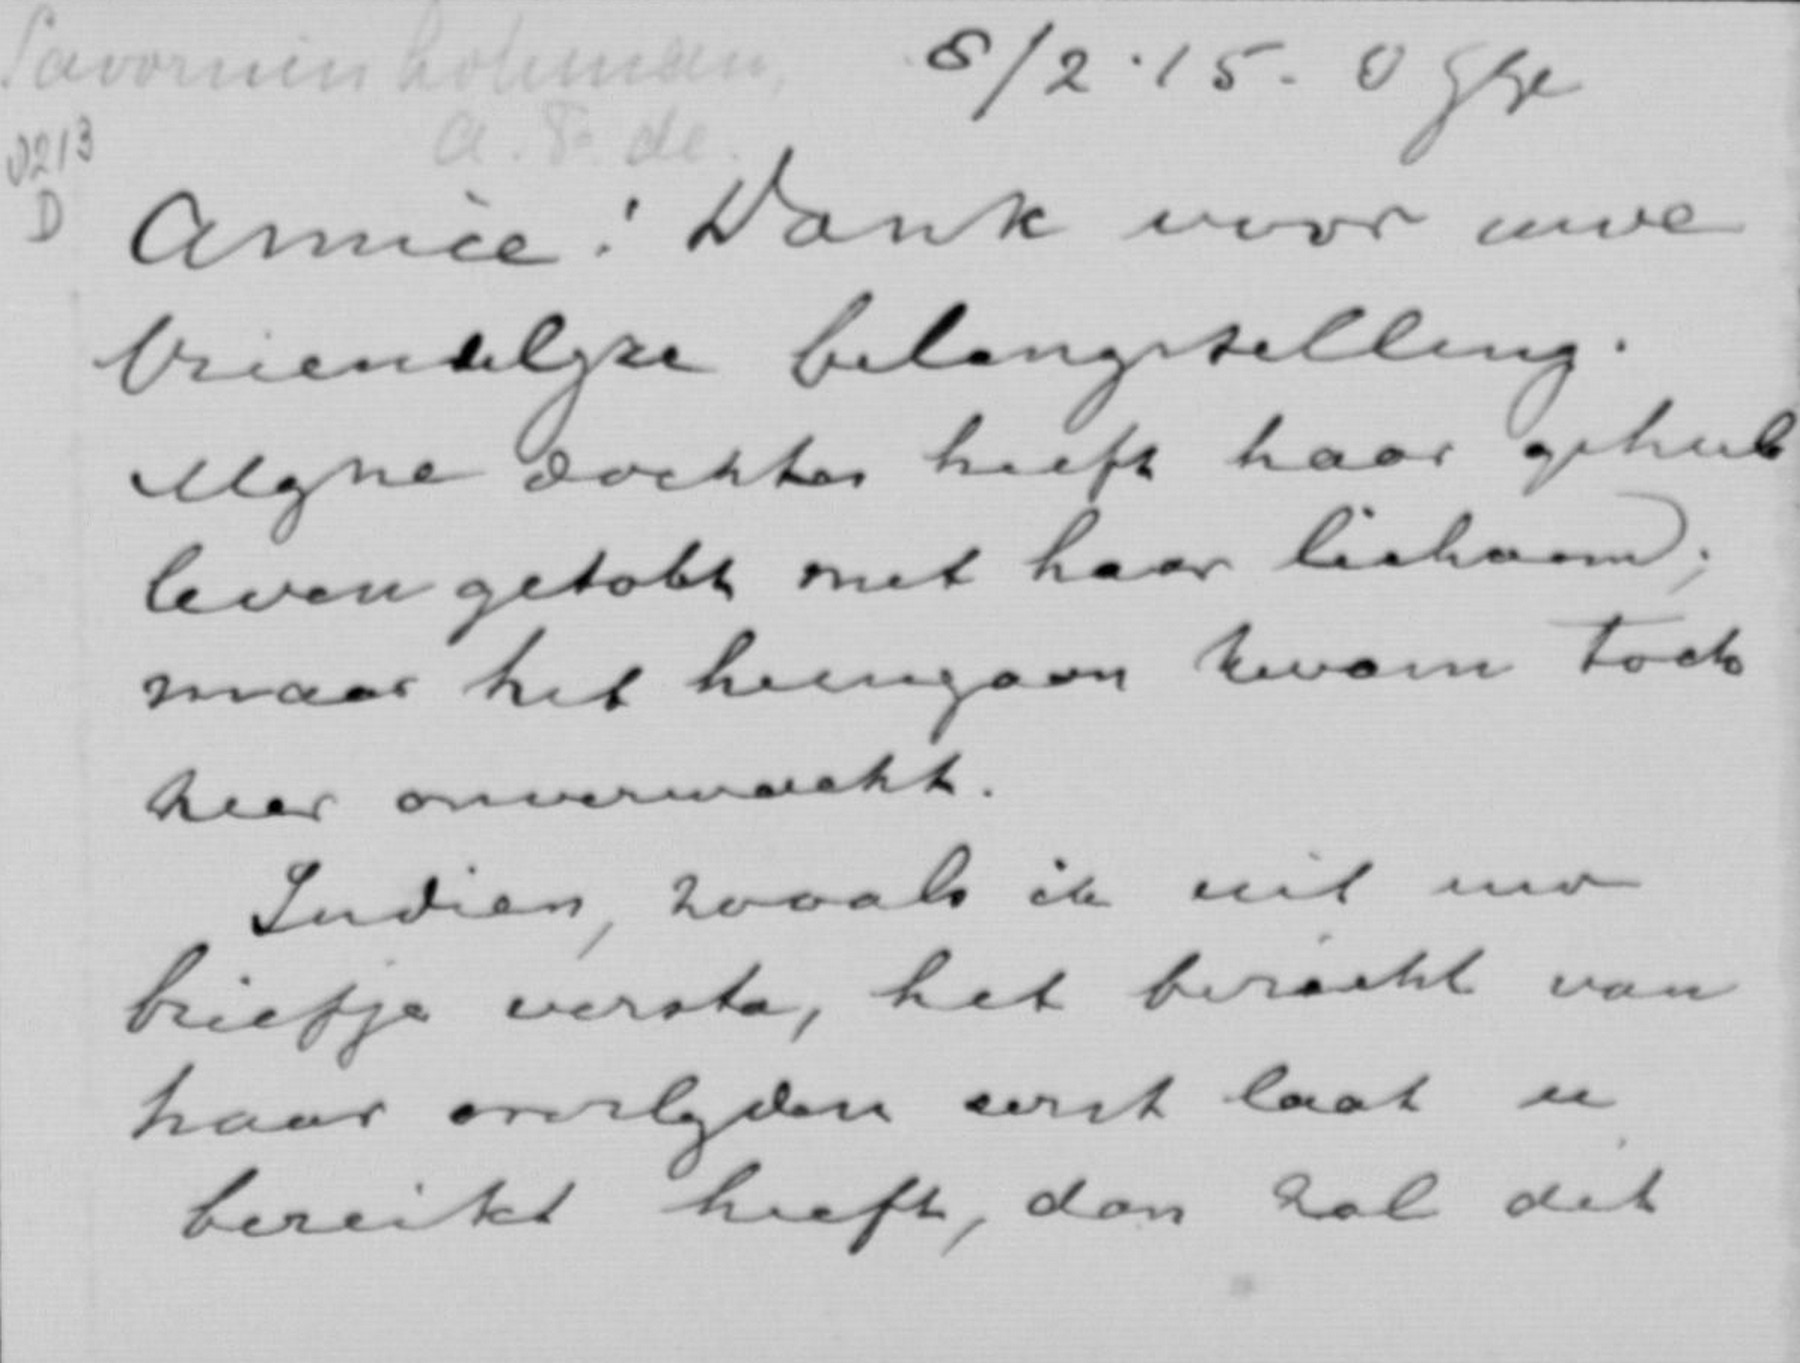 Savornin Lohman,
8/2.15.
A. F. de.
0213
D
Amice! Dank voor uwe
vriendelyke belangstelling.
Myne dochter heeft haar geheele
leven getobt met haar lichaam;
maar het heengaan kwam toch
zeer onverwacht.
Indien, zooals ik uit uw
briefje versta, het bericht van
haar overlyden eerst laat u
bereikt heeft, dan zal dit